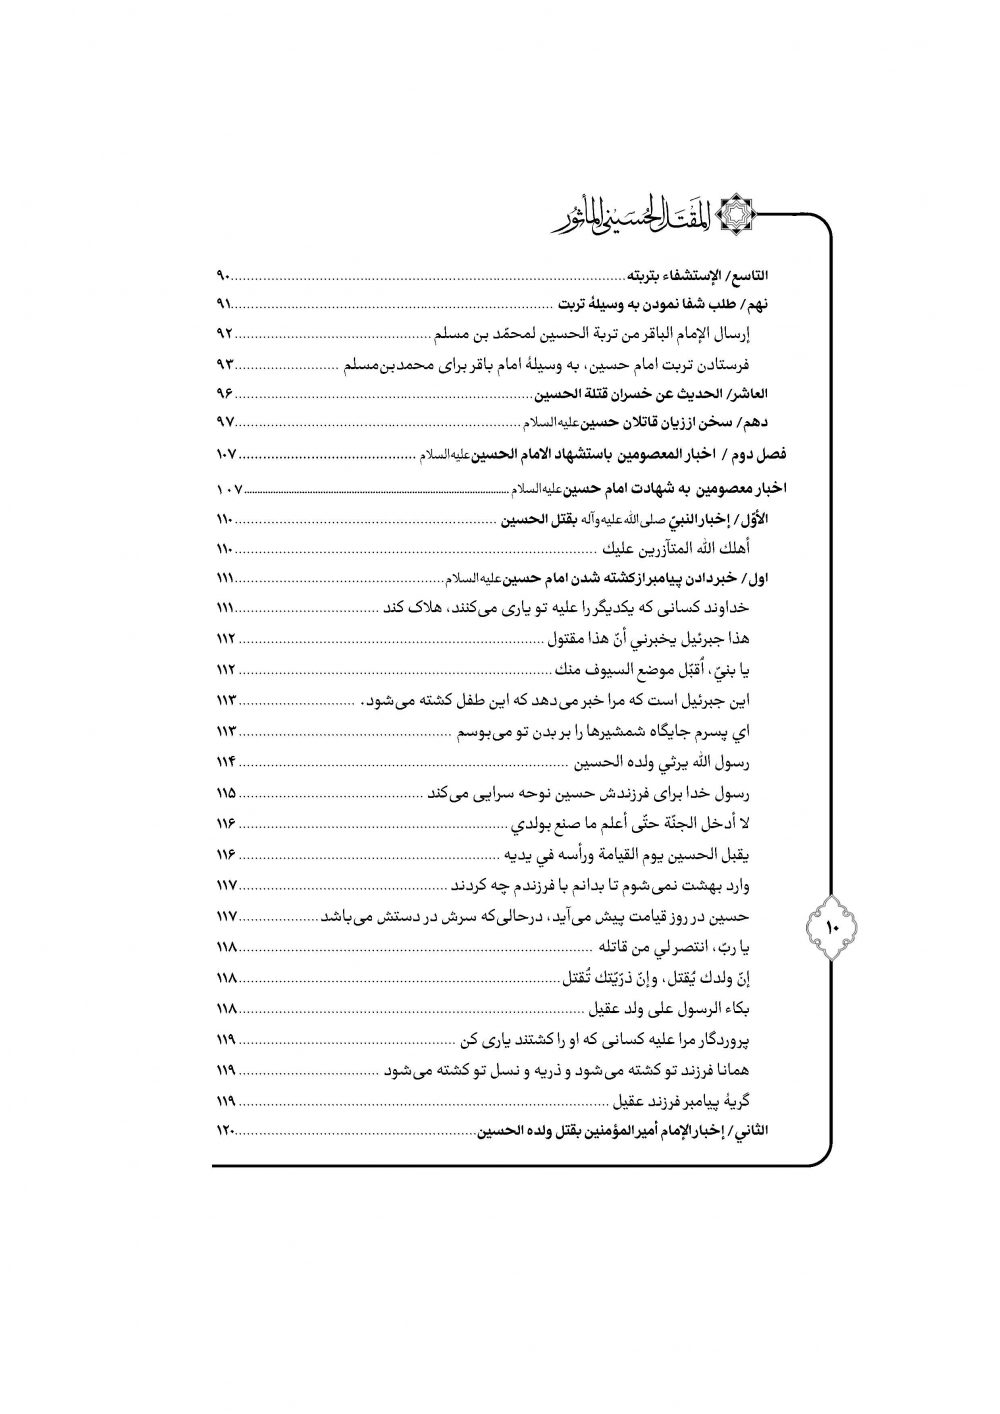 المَقتَل الحُسَيني المأثور
التاسع/ الإستشفاء بتربته........۹۰
نهم/ طلب شفا نمودن به وسیلۀ تربت........۹۱
إرسال الإمام الباقر من تربة الحسین لمحمّد بن مسلم........۹۲
فرستادن تربت امام حسین، به وسیلۀ امام باقر برای محمدبن‌مسلم........۹۳
العاشر/ الحدیث عن خسران قتلة الحسین........۹۶
دهم/ سخن از زیان قاتلان حسین علیه السلام........۹۷
فصل دوم / اخبار المعصومین باستشهاد الامام الحسین علیه السلام........۱۰۷
اخبار معصومین به شهادت امام حسین علیه السلام........۱۰۷
الأوّل/ إخبار النبيّ صلی الله علیه وآله بقتل الحسین........۱۱۰
أهلك الله المتآزرین علیك........۱۱۰
اول/ خبردادن پیامبر از کشته شدن امام حسین علیه السلام........۱۱۱
خداوند کسانی که یکدیگر را علیه تو یاری می‌کنند، هلاک کند........۱۱۱
هذا جبرئیل یخبرني أنّ هذا مقتول........۱۱۲
یا بنيّ، اُقبّل موضع السیوف منك........۱۱۲
این جبرئیل است که مرا خبر می‌دهد که این طفل کشته می‌شود.........۱۱۳
اي پسرم جایگاه شمشیرها را بر بدن تو می‌بوسم........۱۱۳
رسول الله یرثي ولده الحسین........۱۱۴
رسول خدا برای فرزندش حسین نوحه سرایی می‌کند........۱۱۵
لا أدخل الجنّة حتّی أعلم ما صنع بولدي........۱۱۶
یقبل الحسین یوم القیامة ورأسه في یدیه........۱۱۶
وارد بهشت نمی‌شوم تا بدانم با فرزندم چه کردند........۱۱۷
حسین در روز قیامت پیش می‌آید، درحالی‌که سرش در دستش می‌باشد........۱۱۷
یا ربّ، انتصر لي من قاتله........۱۱۸
إنّ ولدك یُقتل، وإنّ ذرّیّتك تُقتل........۱۱۸
بکاء الرسول علی ولد عقیل........۱۱۸
پروردگار مرا علیه کسانی که او را کشتند یاری کن........۱۱۹
همانا فرزند تو کشته می‌شود و ذریه و نسل تو کشته می‌شود........۱۱۹
گریۀ پیامبر فرزند عقیل........۱۱۹
الثاني/ إخبار الإمام أمیر المؤمنین بقتل ولده الحسین........۱۲۰
۱۰